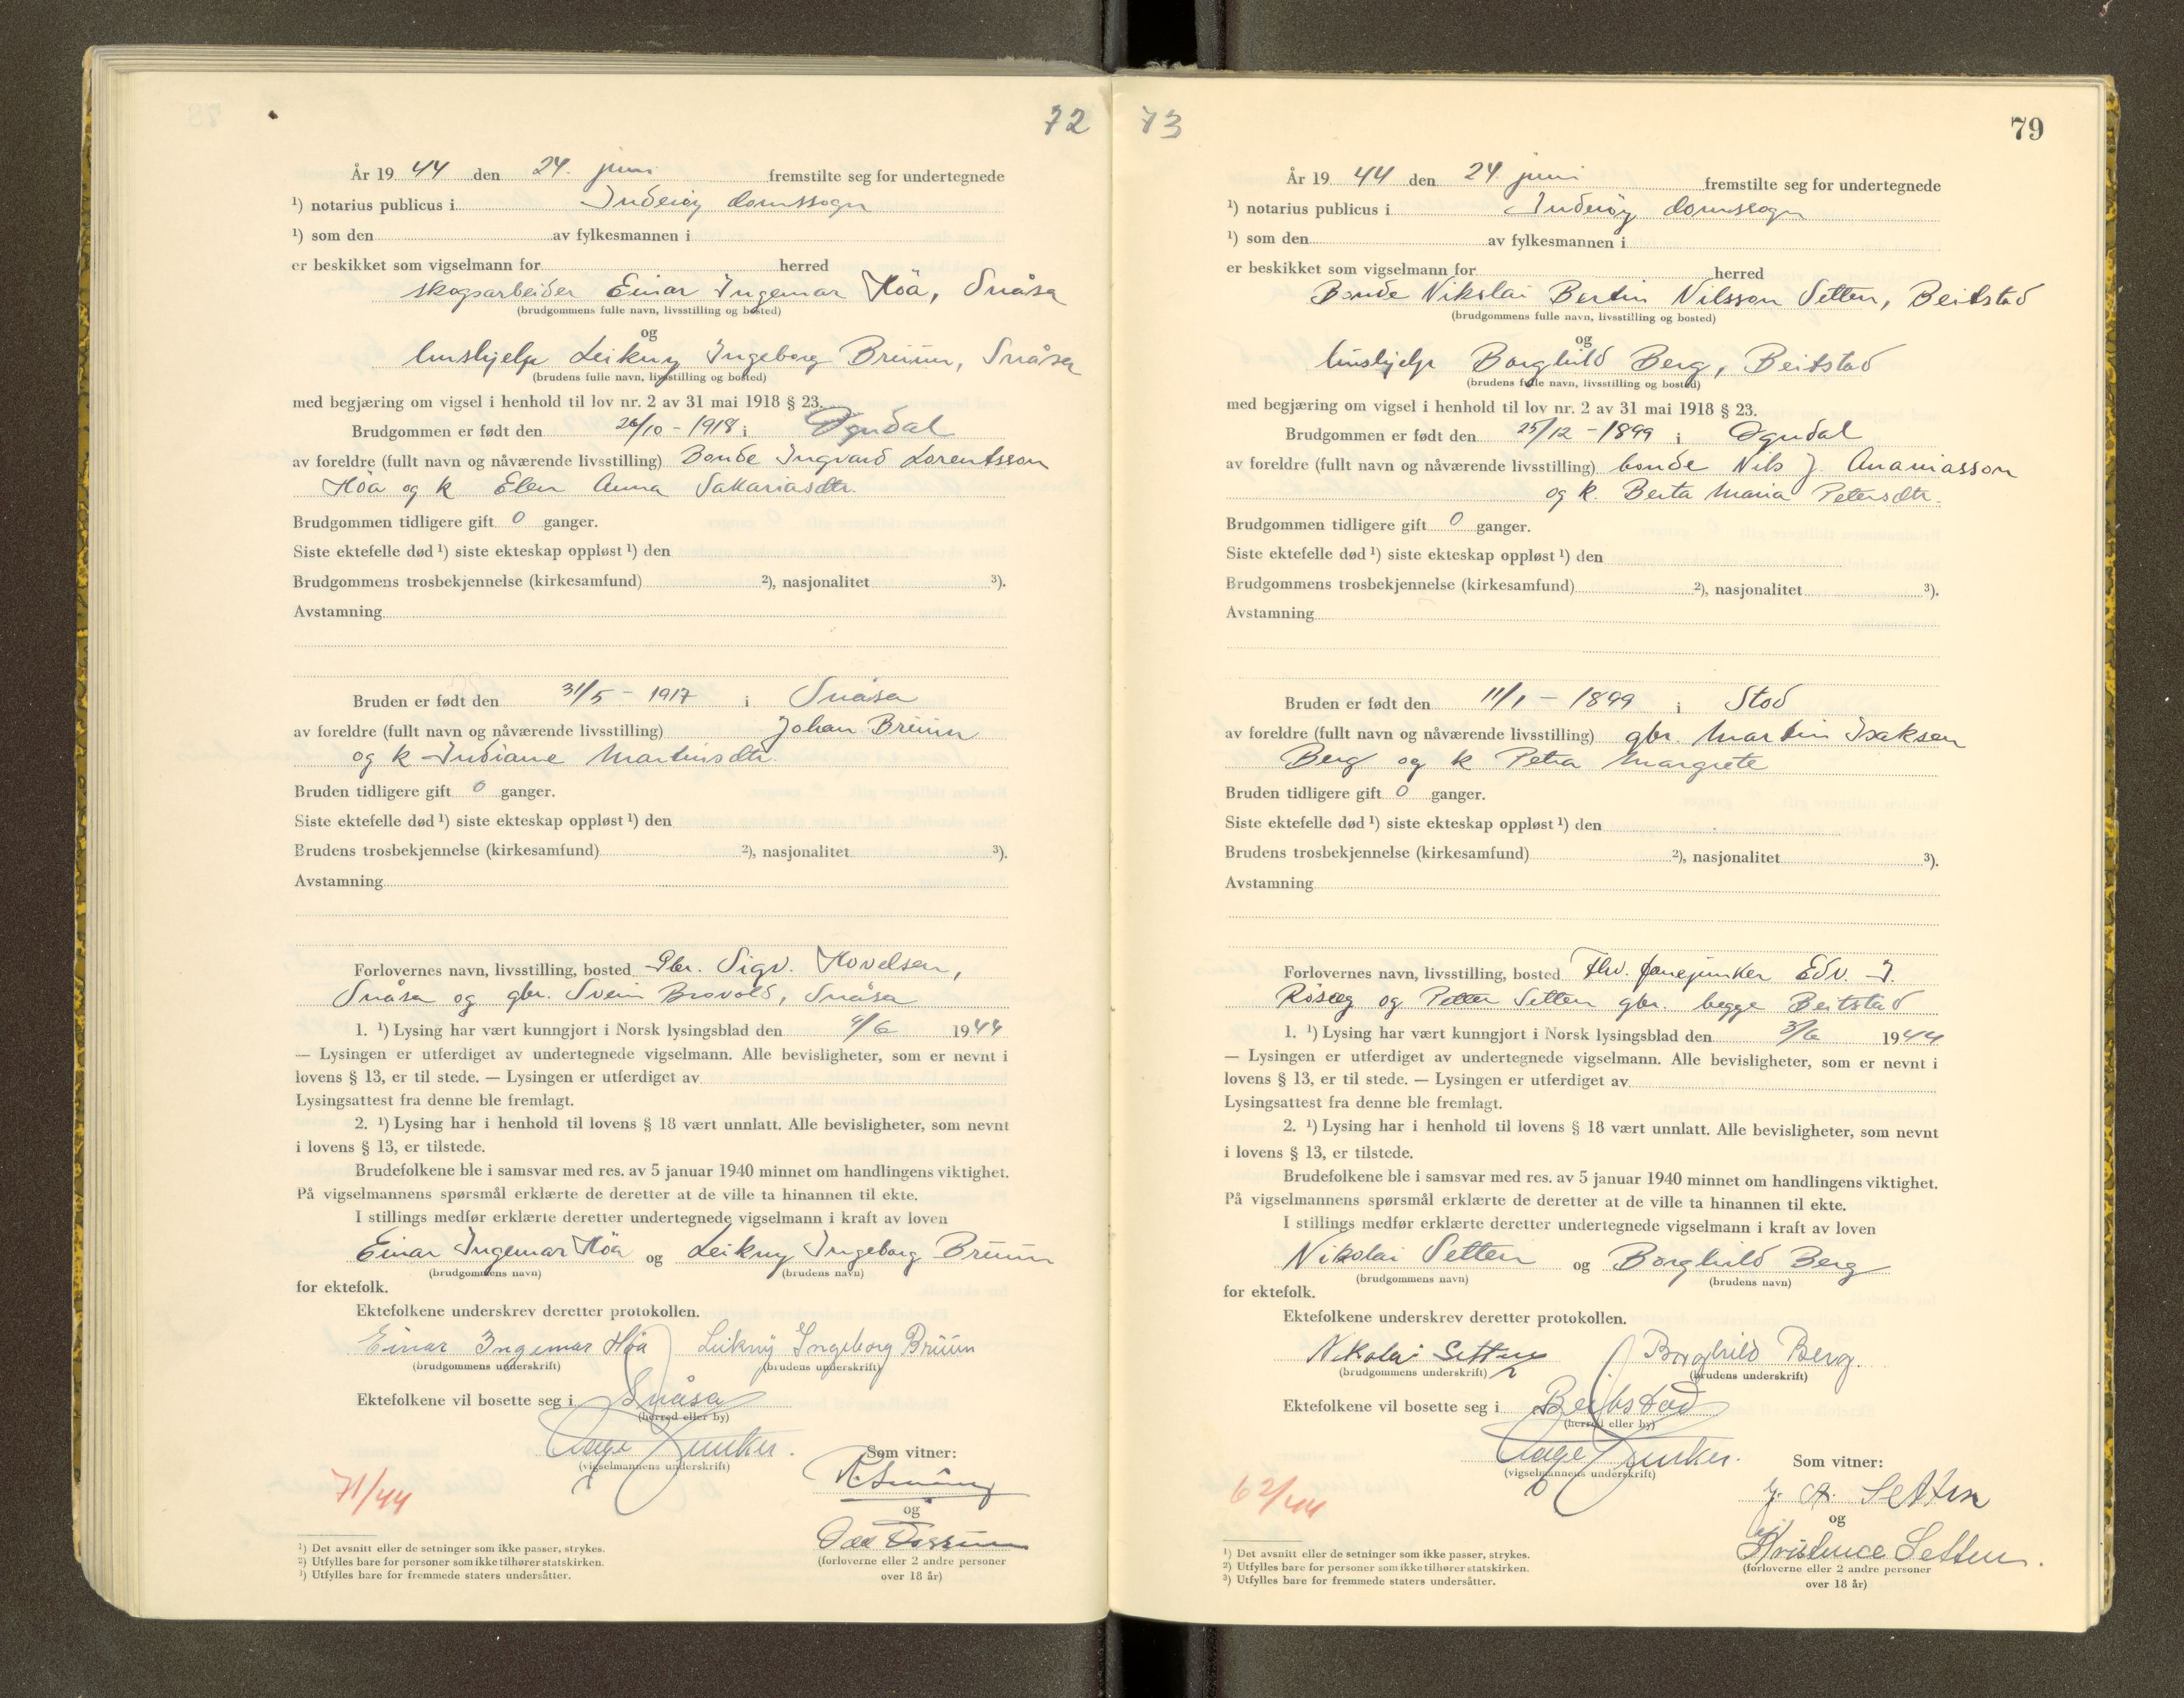 72
År 19 44 den 24. juni fremstilte seg for undertegnede
¹) notarius publicus i Inderøy domssogn
¹) som den av fylkesmannen i
er beskikket som vigselmann for herred
skogsarbeider Einar Ingemar Höa, Snåsa
(brudgommens fulle navn, livsstilling og bosted)
og
hushjelp Leikny Ingeborg Brüun, Snåsa
(brudens fulle navn, livsstilling og bosted)
med begjæring om vigsel i henhold til lov nr. 2 av 31 mai 1918 § 23.
Brudgommen er født den 26/10 - 1918 i Ogndal
av foreldre (fullt navn og nåværende livsstilling) Bonde Ingvard Lorentsson
Höa og k Elen Anna Sakariasdtr.
Brudgommen tidligere gift 0 ganger.
Siste ektefelle død ¹) siste ekteskap oppløst ¹) den
Brudgommens trosbekjennelse (kirkesamfund) ²), nasjonalitet ³).
Avstamning
Bruden er født den 31/5 - 1917 i Snåsa
av foreldre (fullt navn og nåværende livsstilling) Johan Brüun
og k Indiane Martinsdtr.
Bruden tidligere gift 0 ganger.
Siste ektefelle død ¹) siste ekteskap oppløst ¹) den
Brudens trosbekjennelse (kirkesamfund) ²), nasjonalitet ³).
Avstamning
Forlovernes navn, livsstilling, bosted Gbr. Sigv. Hovelsen,
Snåsa og gbr. Svein Brovold, Snåsa
1. ¹) Lysing har vært kunngjort i Norsk lysingsblad den 9/6 1944
— Lysingen er utferdiget av undertegnede vigselmann. Alle bevisligheter, som er nevnt i
lovens § 13, er til stede. — Lysingen er utferdiget av
Lysingsattest fra denne ble fremlagt.
2. ¹) Lysing har i henhold til lovens § 18 vært unnlatt. Alle bevisligheter, som nevnt
i lovens § 13, er tilstede.
Brudefolkene ble i samsvar med res. av 5 januar 1940 minnet om handlingens viktighet.
På vigselmannens spørsmål erklærte de deretter at de ville ta hinannen til ekte.
I stillings medfør erklærte deretter undertegnede vigselmann i kraft av loven
Einar Ingemar Höa og Leikny Ingeborg Brüun
(brudgommens navn) (brudens navn)
for ektefolk.
Ektefolkene underskrev deretter protokollen.
Einar Ingemar Höa Leikny Ingeborg Brüun
(brudgommens underskrift) (brudens underskrift)
Ektefolkene vil bosette seg i Snåsa
(herred eller by)
Aage Junker.
(vigselmannens underskrift)
Som vitner:
og
71/44
(forloverne eller 2 andre personer
over 18 år)
¹) Det avsnitt eller de setninger som ikke passer, strykes.
²) Utfylles bare for personer som ikke tilhører statskirken.
³) Utfylles bare for fremmede staters undersåtter.
73 79
År 19 44 den 24. juni fremstilte seg for undertegnede
¹) notarius publicus i Inderøy domssogn
¹) som den av fylkesmannen i
er beskikket som vigselmann for herred
Bonde Nikolai Bertin Nilsson Setten, Beitstad
(brudgommens fulle navn, livsstilling og bosted)
og
hushjelp Borghild Berg, Beitstad
(brudens fulle navn, livsstilling og bosted)
med begjæring om vigsel i henhold til lov nr. 2 av 31 mai 1918 § 23.
Brudgommen er født den 25/12 - 1899 i Ogndal
av foreldre (fullt navn og nåværende livsstilling) bonde Nils J. Ananiasson
og k. Berta Maria Petersdtr.
Brudgommen tidligere gift 0 ganger.
Siste ektefelle død ¹) siste ekteskap oppløst ¹) den
Brudgommens trosbekjennelse (kirkesamfund) ²), nasjonalitet ³).
Avstamning
Bruden er født den 11/1 - 1899 i Stod
av foreldre (fullt navn og nåværende livsstilling) gbr. Martin Isaksen
Berg og k Petra Margrete
Bruden tidligere gift 0 ganger.
Siste ektefelle død ¹) siste ekteskap oppløst ¹) den
Brudens trosbekjennelse (kirkesamfund) ²), nasjonalitet ³).
Avstamning
Forlovernes navn, livsstilling, bosted Fhv. fanejunker Edv. J.
Röseg og Petter Setten gbr. begge Beitstad
1. ¹) Lysing har vært kunngjort i Norsk lysingsblad den 3/6 1944
— Lysingen er utferdiget av undertegnede vigselmann. Alle bevisligheter, som er nevnt i
lovens § 13, er til stede. — Lysingen er utferdiget av
Lysingsattest fra denne ble fremlagt.
2. ¹) Lysing har i henhold til lovens § 18 vært unnlatt. Alle bevisligheter, som nevnt
i lovens § 13, er tilstede.
Brudefolkene ble i samsvar med res. av 5 januar 1940 minnet om handlingens viktighet.
På vigselmannens spørsmål erklærte de deretter at de ville ta hinannen til ekte.
I stillings medfør erklærte deretter undertegnede vigselmann i kraft av loven
Nikolai Setten og Borghild Berg
(brudgommens navn) (brudens navn)
for ektefolk.
Ektefolkene underskrev deretter protokollen.
Nikolai Setten Borghild Berg.
(brudgommens underskrift) (brudens underskrift)
Ektefolkene vil bosette seg i Beitstad
(herred eller by)
Aage Junker.
(vigselmannens underskrift)
Som vitner:
Setten
og
62/44
Kristence Setten.
(forloverne eller 2 andre personer
over 18 år)
¹) Det avsnitt eller de setninger som ikke passer, strykes.
²) Utfylles bare for personer som ikke tilhører statskirken.
³) Utfylles bare for fremmede staters undersåtter.